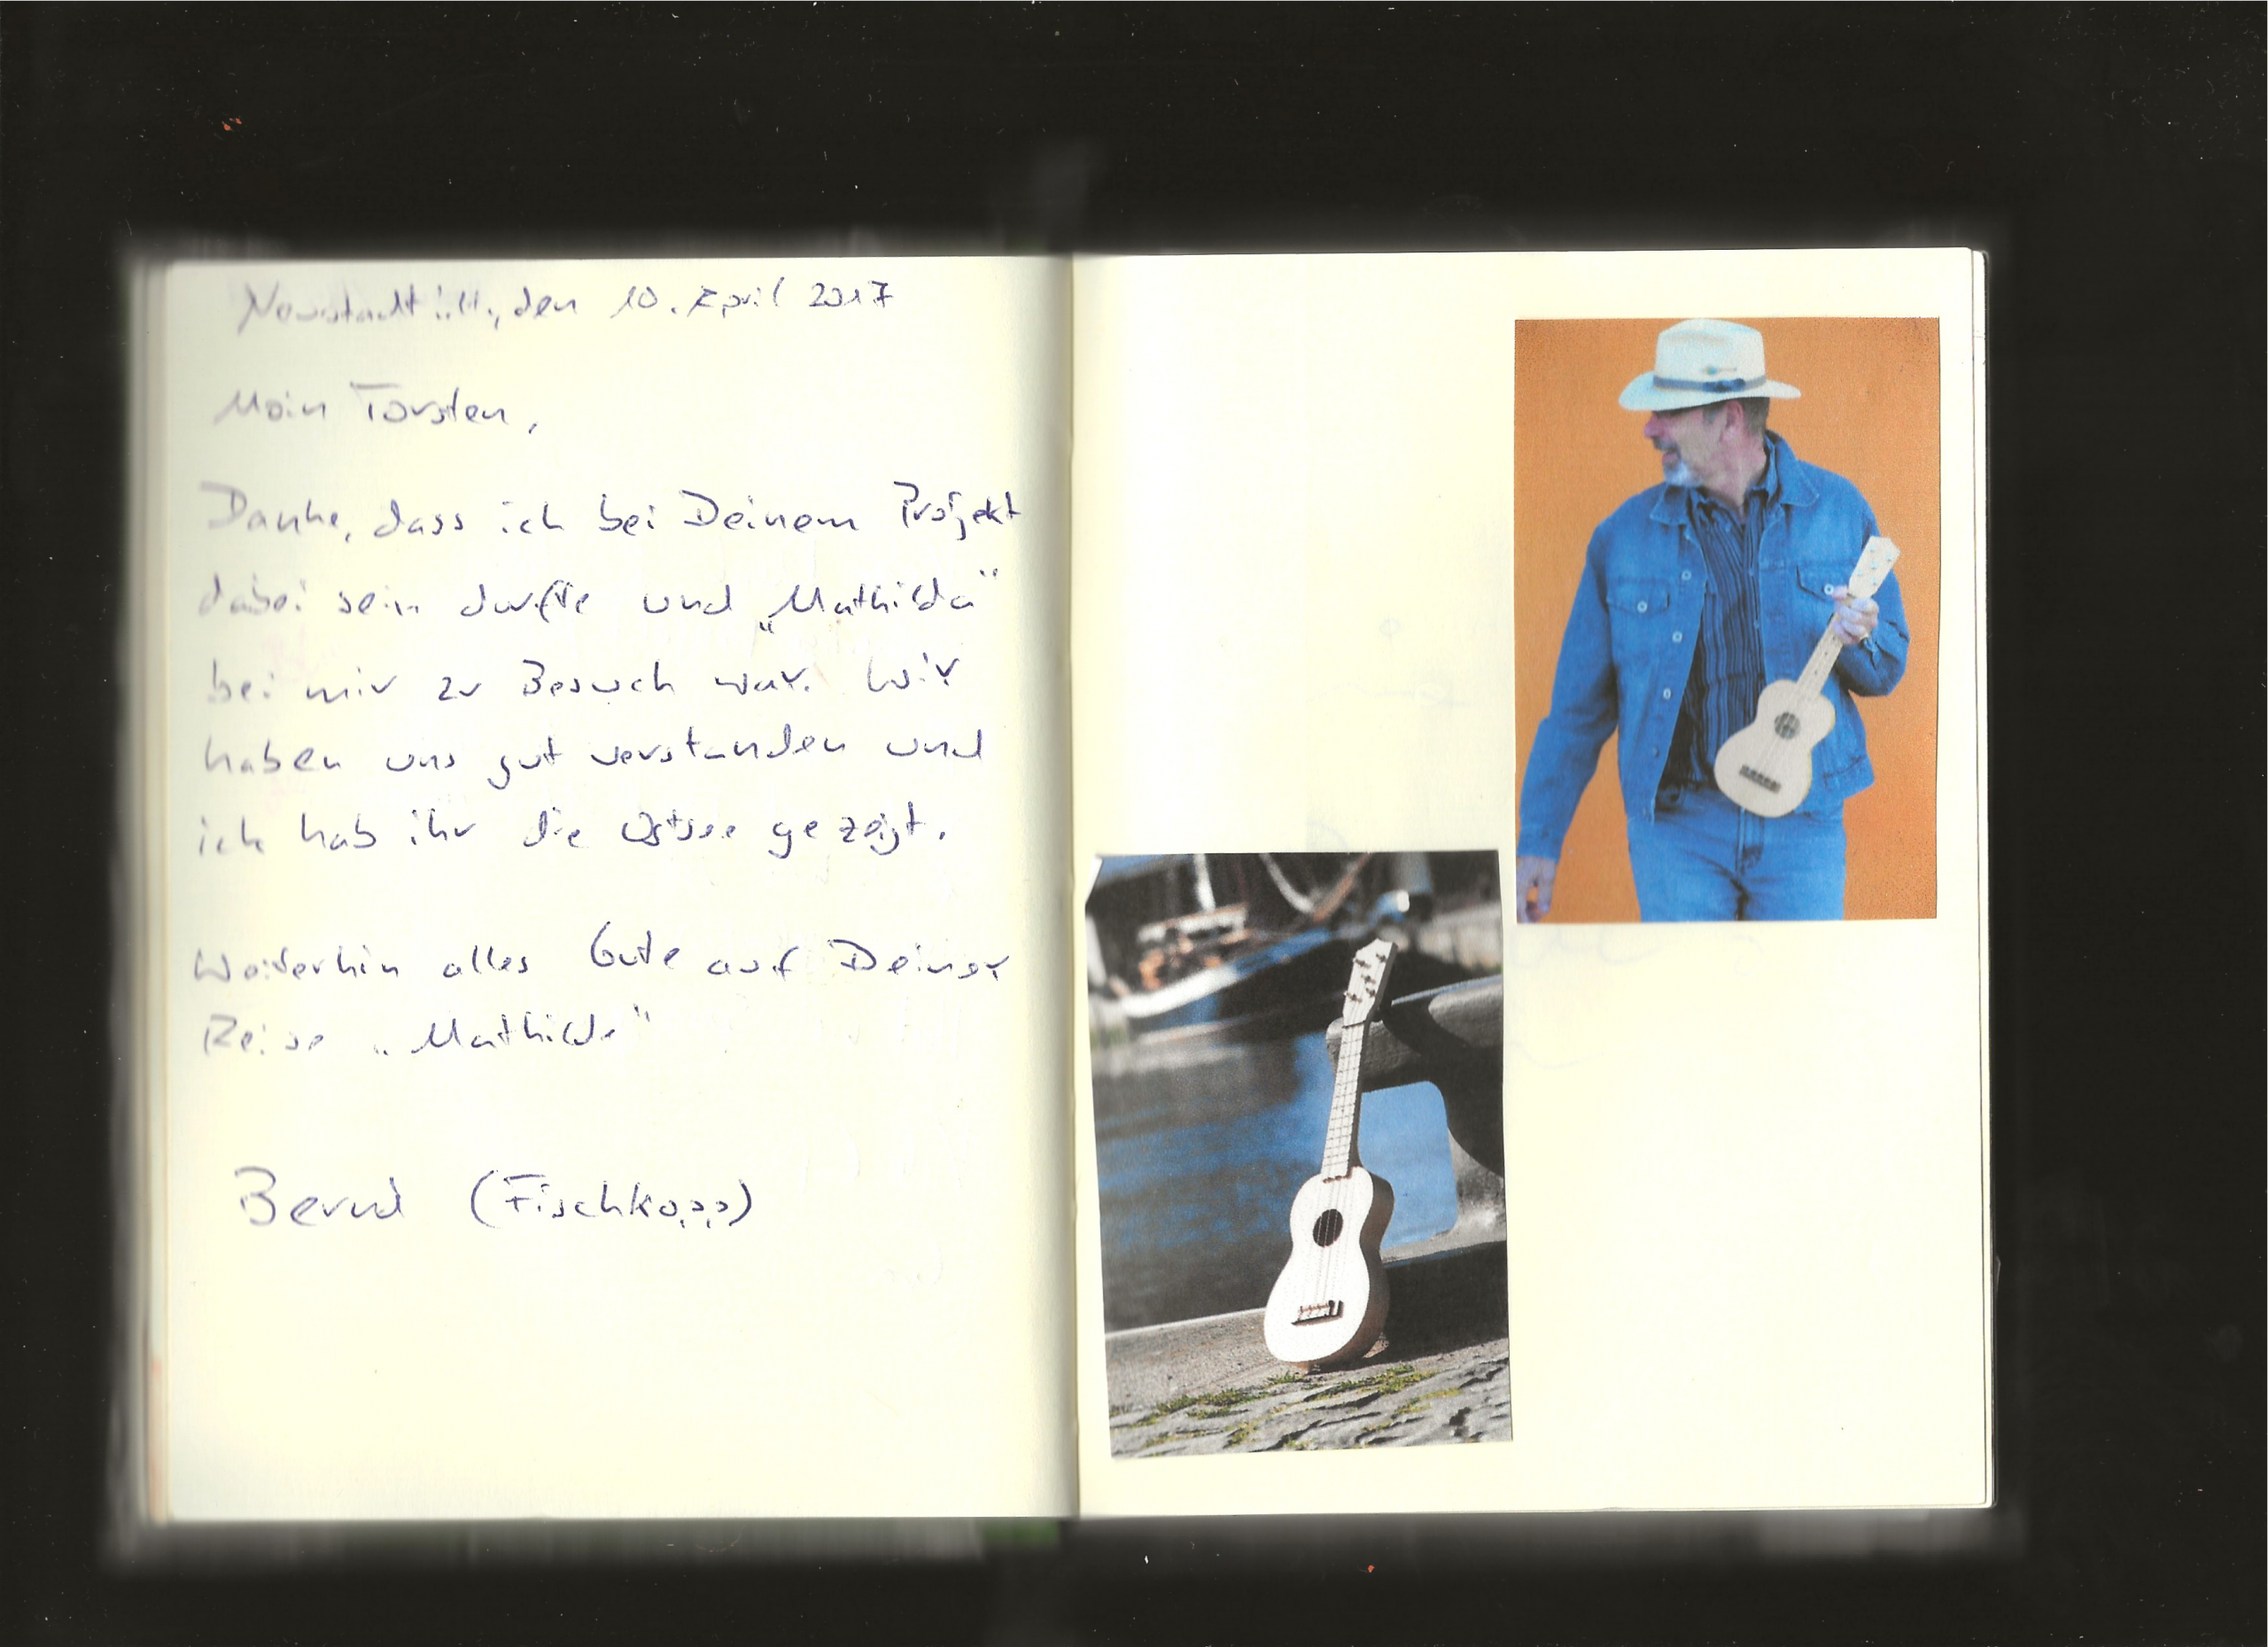 Neustadt i.H., den 10. April 2017
Moin Torsten,
Danke, dass ich bei Deinem Projekt
dabei sein durfte und „Mathilda“
bei mir zu Besuch war. Wir
haben uns gut verstanden und
ich hab ihr die Ostsee gezeigt.
Weiterhin alles Gute auf Deiner
Reise „Mathilda“
Bernd (Fischkopp)